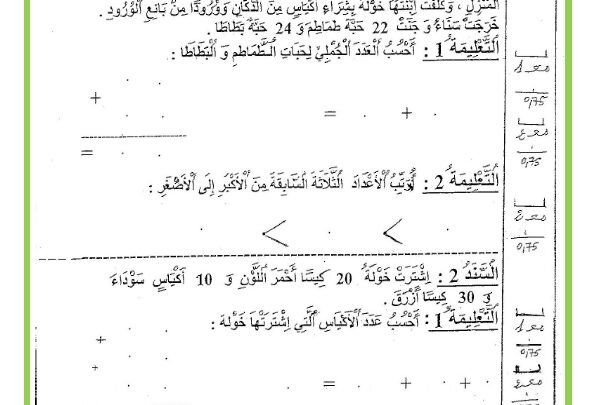 المَنْزِلِ ، وَكَلَّفَتْ اِبْنَتَهَا خَوْلَةَ بِشِرَاءِ أَكْيَاسٍ مِنَ الدُّكَّانِ وَوُرُودًا مِنْ بَائِعِ الْوُرُودِ .
خَرَجَتْ سَنَاءُ وَ جَنَتْ 22 حَبَّةَ طَمَاطِمَ وَ 24 حَبَّةَ بَطَاطَا .
التَّعْلِيمَةُ 1 : أَحْسُبُ الْعَدَدَ الْجُمْلِيَّ لِحَبَّاتِ الطَّمَاطِمِ وَ الْبَطَاطَا :
+
. = . + .
=
التَّعْلِيمَةُ 2 : أُرَتِّبُ الْأَعْدَادَ الثَّلَاثَةَ السَّابِقَةَ مِنَ الْأَكْبَرِ إِلَى الْأَصْغَرِ :
. > . > .
السَّنَدُ 2 : اِشْتَرَتْ خَوْلَةُ 20 كِيسًا أَحْمَرَ اللَّوْنِ وَ 10 أَكْيَاسٍ سَوْدَاءَ
وَ 30 كِيسًا أَزْرَقَ .
التَّعْلِيمَةُ 1 : أَحْسُبُ عَدَدَ الْأَكْيَاسِ الَّتِي اِشْتَرَتْهَا خَوْلَة :
+
+
. = . + . + .
مع1
0,75
مع4
0,75
مع2
0,75
مع1
0,75